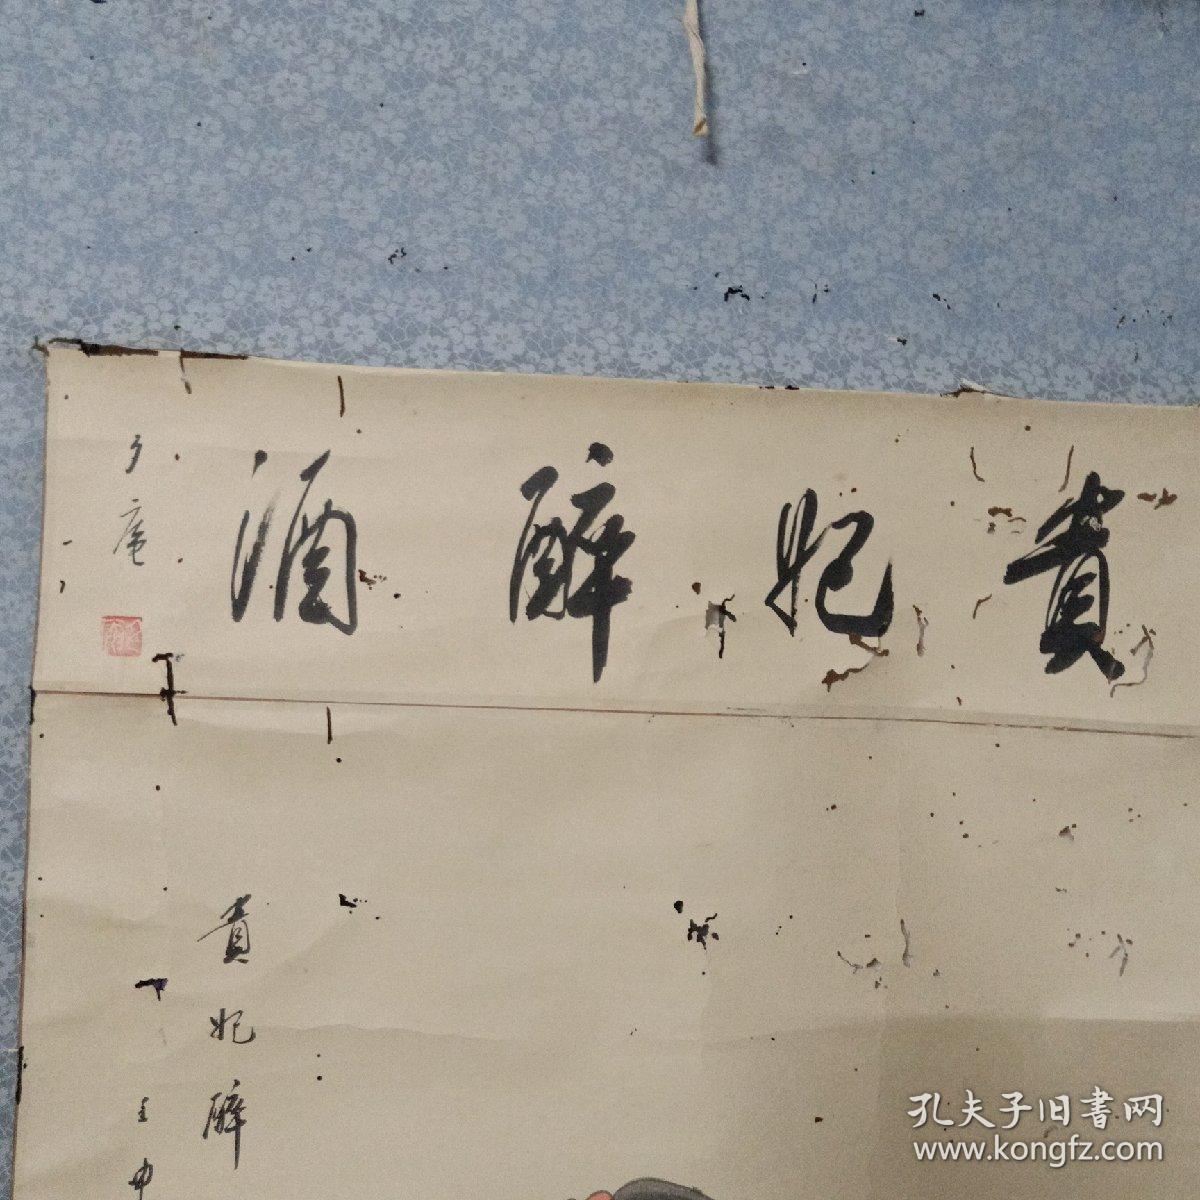 貴妃醉酒
貴妃醉
壬申
孔夫子旧書网
www.kongfz.com